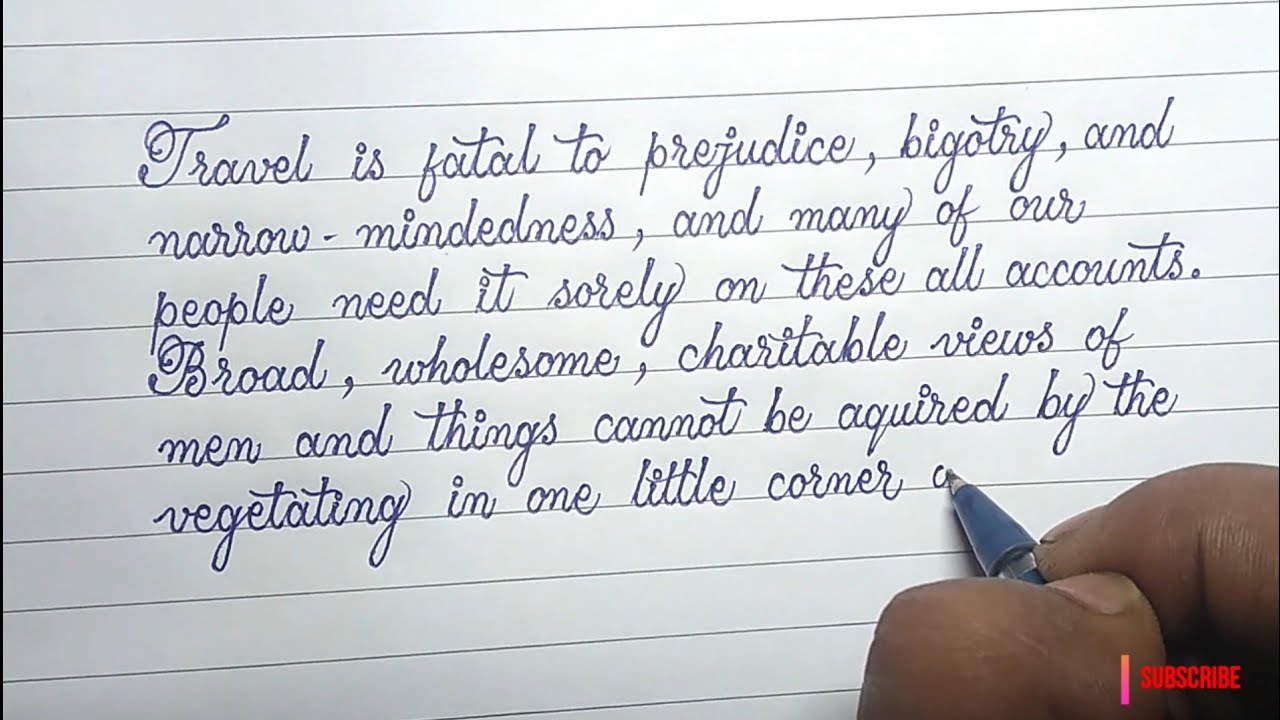 Travel is fatal to prejudice, bigotry, and
narrow-mindedness, and many of our
people need it sorely on these all accounts.
Broad, wholesome, charitable views of
men and things cannot be aquired by the
vegetating in one little corner
SUBSCRIBE